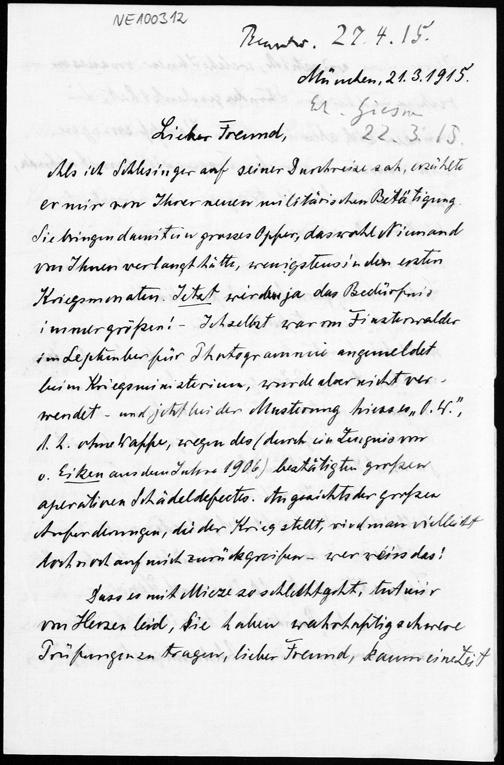 NE100312
Beantw. 27.4.15.
München, 21.3.1915.
22.3.15.
Lieber Freund,
Als ich Schlesinger auf seiner Durchreise sah, erzählte
er mir von Ihrer neuen militärischen Betätigung.
Sie bringen damit ein grosses Opfer, das wohl Niemand
von Ihnen verlangt hätte, wenigstens in den ersten
Kriegsmonaten. Jetzt wird ja das Bedürfnis
immer größer! - Ich selbst war von Finsterwalder
im September für Photogrammie angemeldet
beim Kriegsministerium, wurde aber nicht ver-
wendet - und jetzt bei der Musterung hiess es „O.W.",
d.h. ohne Waffe, wegen des (durch ein Zeugnis von
v. Eiken aus dem Jahre 1906) bestätigten großen
operativen Schädeldefectes. Angesichts der großen
Anforderungen, die der Krieg stellt, wird man vielleicht
doch noch auf mich zurückgreifen - wer weiss das!
Dass es mit Mieze so schlecht geht, tut mir
von Herzen leid, Sie haben wahrhaftig schwere
Prüfungen zu tragen, lieber Freund, kaum eine Zeit